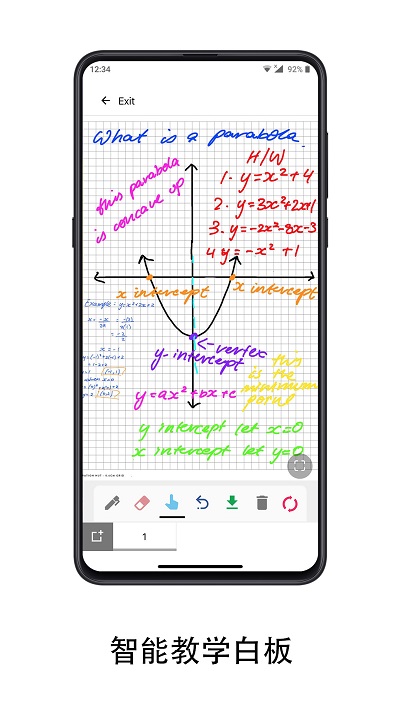 12:34
92%
← Exit
What is a parabola.
this parabola
is concave up
H/W
1. y=x²+4
2. y=3x²+2x+1
3. y=-2x²-8x-3
4 y=-x²+1
x intercept
x intercept
Example: y=x²+2x+2
x = -1
y-intercept
←vertex
this
is the
minimum
point
y=ax²+bx+c
y intercept let x=0
x intercept let y=0
1
智能教学白板